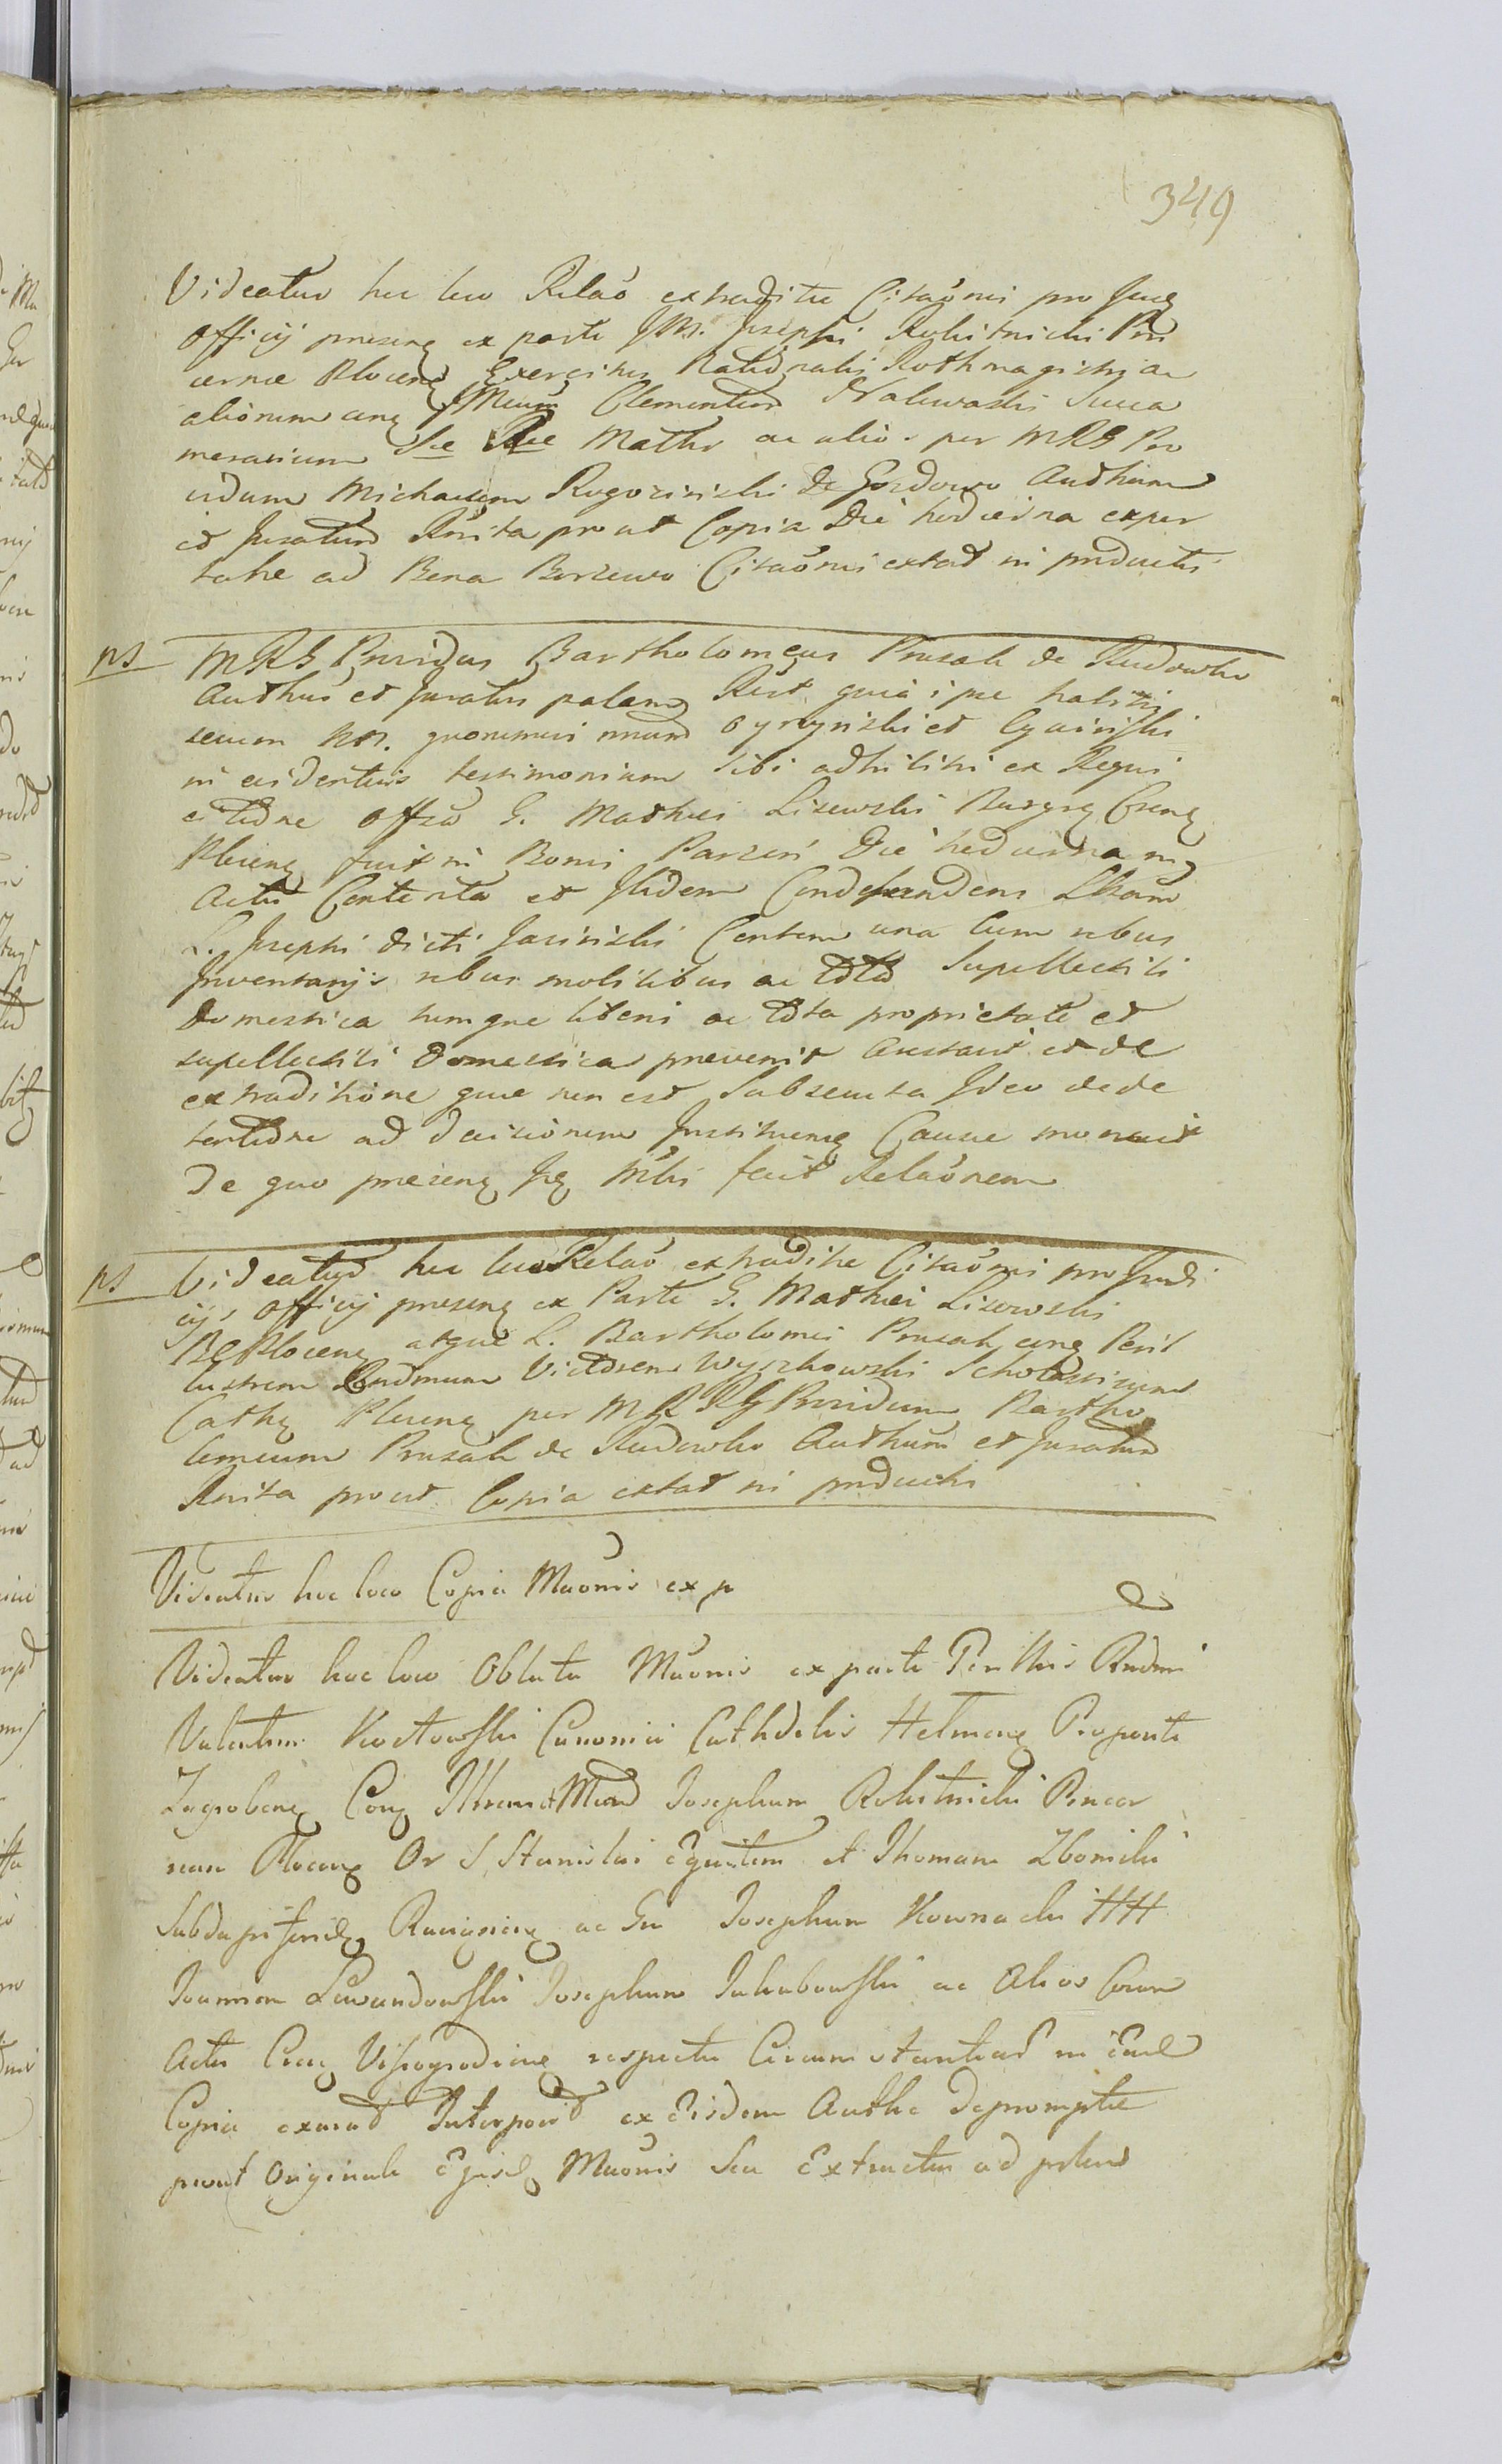 349
Videatur hic loco Relaõ extraditae Citaõnis pro Jud
officij presen ex parte JM. Josephi Rokitnicki Pin
cernae Plocen Exercitus Nationalis Rothmagistri ac
aliorum cum Clementem Nalewaski Succa
merarium Sae Rae Mattis ac alios per MRG Pro
vidum Michaelem Rogozinski de Gozdowo Authum
et Juratum Rnita prout Copia Die hodierna exper
tatae ad Bona Borzewo Citaõnis extat in productis
ps MRG Providus Bartholomeus Prusak de Rudowko
Authus et Juratus palam Rect quia ipse habitis
secum NN. quorumvis unum Gyrzynski et Cywinski
in evidentius testimonium sibi adhibitis ex Requi
sitione offsa G. Mathiei Lisewski Burgra Cren
Plocen fuit in Bonis Parzen Die hodierna in
Actu Contenta et Ibidem Condescendens
L. Josephi dicti Jasinski Censem una cum rebus
Inventarijs rebus mobilibus ac tota Supellectili
Domestica sumque liberis ac tota proprietate et
supellectili Domestica prevenit Arestavit et de
extraditione quae non est Subsecuta Ideo de de
tentione ad decisionem Instituen Causae monuit
De quo presen Jg Mtri fecit Relaõnem
ps Videatur hic loco Relaõ extraditae Citaõnis pro Judi
cijs officij presen ex Parte G. Mathiei Lisowski
BG Plocen atque L. Bartholomei Prusak cum Peril
lustrem Rndmum Victorem Wyszkowski Scholasticum
Cathe Plocen per MRRG Providum Bartho
lomeum Prusak de Rudowko Authum et Juratum
Rnita prout Copia extat in productis
Videatur hoc loco Copia Maõnis ex p
Videatur hoc loco Oblata Maõnis ex parte Per Illris Rndmi
Valentini Kwotowski Canonici Cathdalis Helmen Propositi
Zagroben Con Josephum Rokitnicki Pincer
nam Plocen Or S Stanislai Equitem et Thomam Zbonicki
Subdapiferid Raciązien ac Gn Josephum Kownacki HH
Joannem Lewandowski Josephum Jakubowski ac Alios Coram
Actis Cren Vissogrodien respectu Circumstantiar in Ead
Copia exarat Interposit ex Eisdem Authe Depromptae
prout Originale Ejusd Maõnis Seu Extractus ad prtus